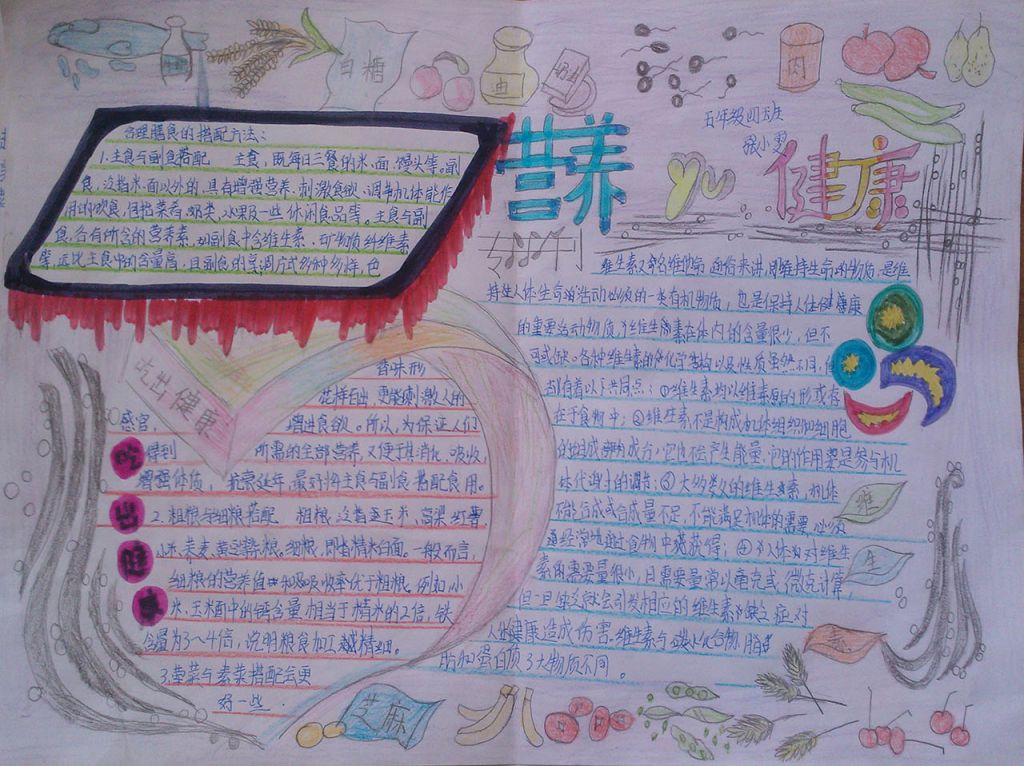 白糖
油
奶
肉
五年级四班
张小雯
营养
与
健康
专刊
合理膳食的搭配方法:
1.主食与副食搭配 主食,既每日三餐的米、面、馒头等。副
食,泛指米、面以外的,具有增强营养、刺激食欲、调节机体能作
用的饮食,包括菜肴、奶类、水果及一些休闲食品等。主食与副
食,各有所含的营养素,如副食中含维生素、矿物质纤维素
等,远比主食中的含量高,且副食的烹调方式多种多样,色
香味形
花样百出,更能刺激人的
感官, 增进食欲。所以,为保证人们
得到 所需的全部营养,又便于其消化、吸收,
增强体质、抗衰延年,最好将主食与副食搭配食用。
2.粗粮与细粮搭配 粗粮,泛指玉米、高粱、红薯
小米、荞麦、黄豆等杂粮,细粮,即指精米白面。一般而言,
细粮的营养价值和吸收率优于粗粮,例如小
米、玉米面中的钙含量相当于精米的2倍,铁
含量为3~4倍,说明粮食加工越精细。
3.荤菜与素菜搭配会更
好一些.
吃出健康
吃
出
健
康
维生素又名维他命,通俗来讲,即维持生命的物质,是维
持人体生命活动必须的一类有机物质,也是保持人体健康
的重要活动物质。维生素在体内的含量很少,但不
可或缺。各种维生素的化学结构以及性质虽然不同,但
却有着以下共同点:①维生素均以维生素原的形式存
在于食物中;②维生素不是构成机体组织和细胞
的组成成分,它也不会产生能量,它的作用主要是参与机
体代谢的调节;③大多数的维生素,机体
不能合成或合成量不足,不能满足机体的需要,必须
通经常通过食物中获获得;④人体对维生
素的需要量很小,日需要量常以毫克或微克计算,
但一旦缺乏就会引发相应的维生素缺乏症,对
人体健康造成伤害.维生素与碳水化合物、脂肪
肪和蛋白质3大物质不同。
维
生
素
芝麻